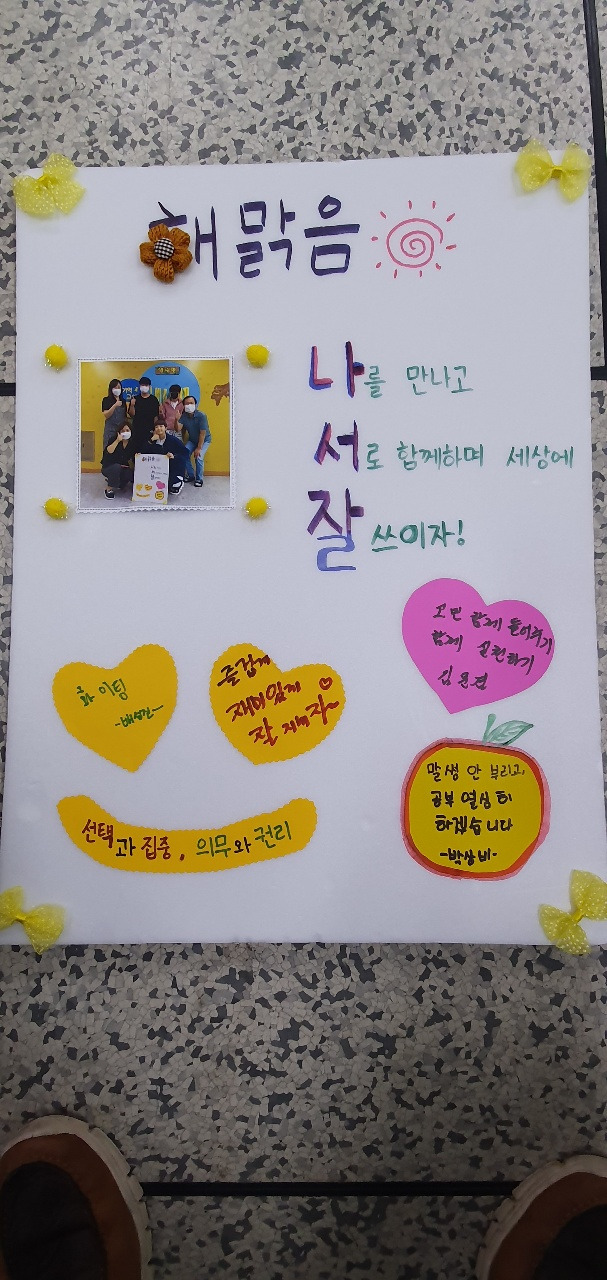 해맑음
나를 만나고
서로 함께하며 세상에
잘 쓰이자!
고민 함께 들어주기
함께 실천하기
화이팅
즐겁게
재미있게
잘 지내자~
말썽 안 부리고,
공부 열심히
하겠습니다
-박상비-
선택과 집중, 의무와 권리